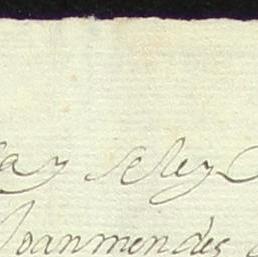 ay seley
Joanmendes